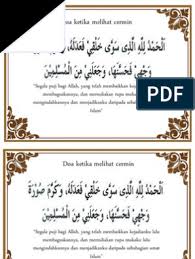 Doa ketika melihat cermin
اَلْحَمْدُ لِلَّهِ الَّذِى سَوَّى خَلْقِيْ فَعَدَلَهُ، وَكَرَّمَ صُوْرَةَ
وَجْهِيْ فَحَسَّنَهَا، وَجَعَلَنِيْ مِنَ الْمُسْلِمِيْنَ
"Segala puji bagi Allah, yang telah membaikkan kejadianku lalu
membaguskannya, dan memuliakan rupa mukaku lalu
mengindahkannya dan menjadikanku daripada sebahagian umat
Islam"
PDF
Doa ketika melihat cermin
اَلْحَمْدُ لِلَّهِ الَّذِى سَوَّى خَلْقِيْ فَعَدَلَهُ، وَكَرَّمَ صُوْرَةَ
وَجْهِيْ فَحَسَّنَهَا، وَجَعَلَنِيْ مِنَ الْمُسْلِمِيْنَ
"Segala puji bagi Allah, yang telah membaikkan kejadianku lalu
membaguskannya, dan memuliakan rupa mukaku lalu
mengindahkannya dan menjadikanku daripada sebahagian umat
Islam"